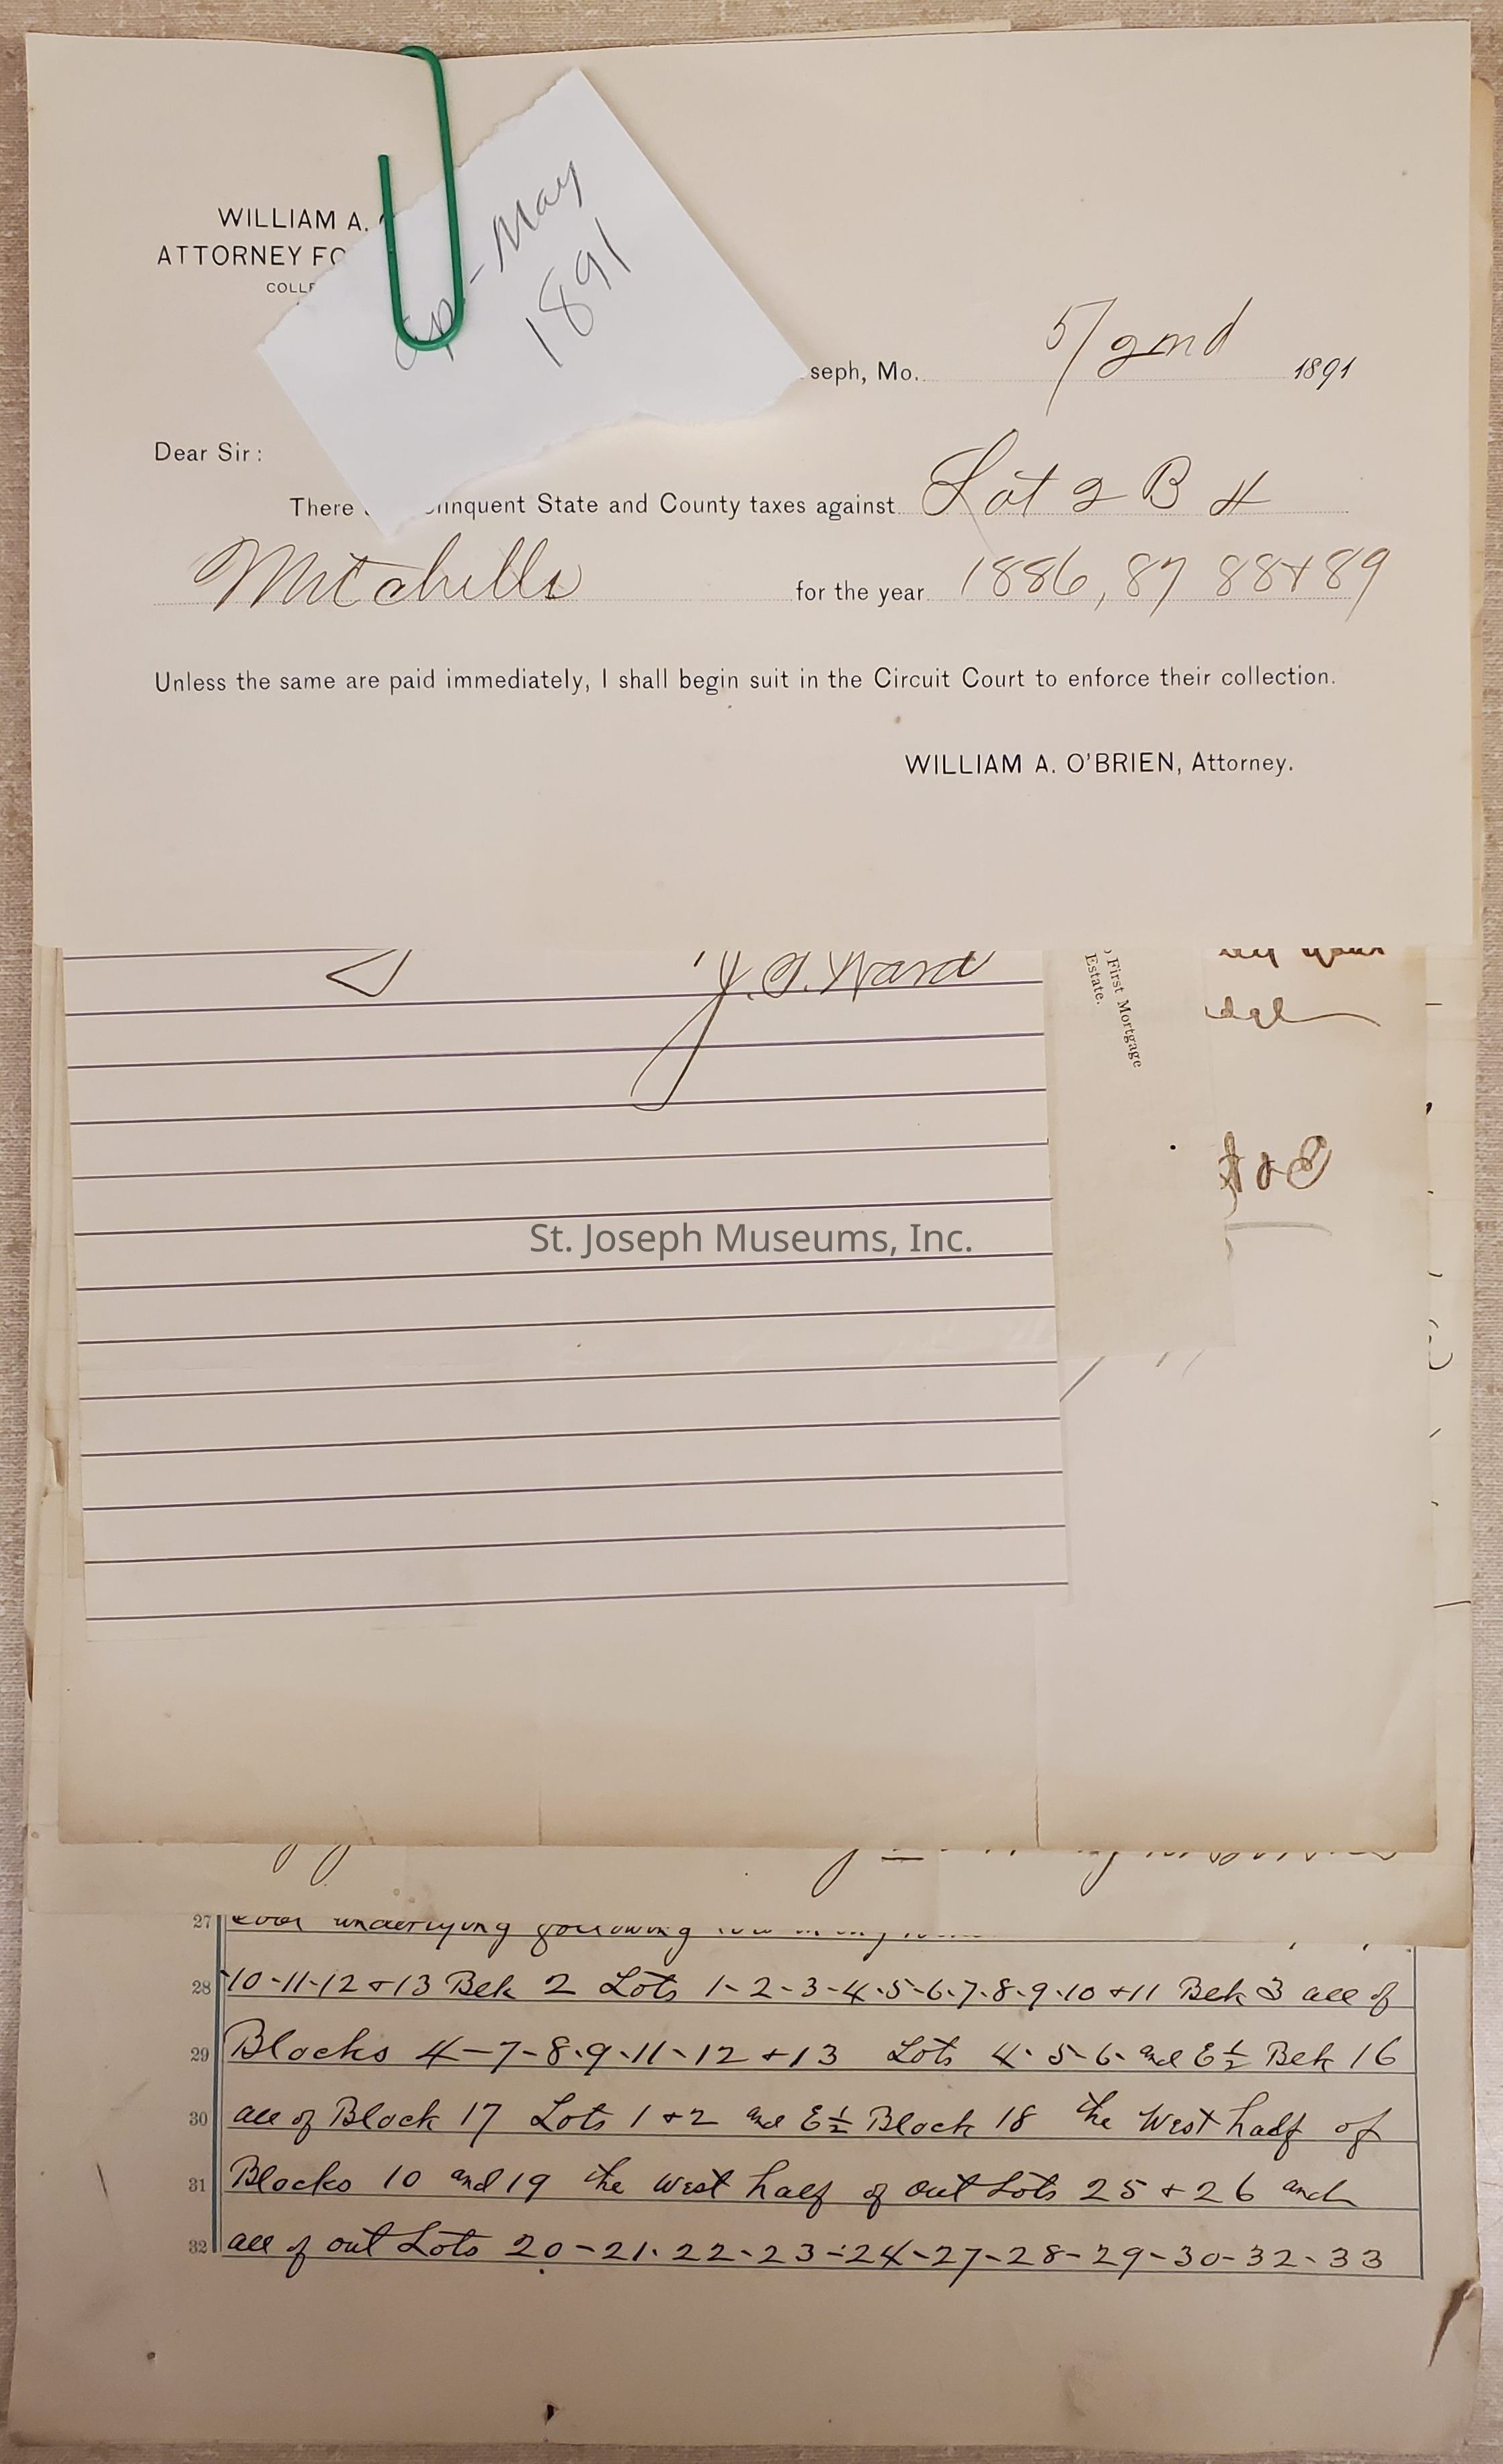 WILLIAM A.
ATTORNEY FO
COLLE
Ap - May
1891
seph, Mo. 5/2nd 1891
Dear Sir:
There linquent State and County taxes against Lot 2 B 4
Mitchells for the year 1886, 87 88 + 89
Unless the same are paid immediately, I shall begin suit in the Circuit Court to enforce their collection.
WILLIAM A. O'BRIEN, Attorney.
J. T. Ward
First Mortgage
Estate.
St. Joseph Museums, Inc.
27 underlying following
28 10-11-12 + 13 Blk 2 Lots 1-2-3-4-5-6-7-8-9-10 + 11 Blk 3 all of
29 Blocks 4-7-8-9-11-12 + 13 Lots 4-5-6- and E ½ Blk 16
30 all of Block 17 Lots 1 + 2 and E ½ Block 18 the West half of
31 Blocks 10 and 19 the West half of out Lots 25 + 26 and
32 all of out Lots 20-21-22-23-24-27-28-29-30-32-33